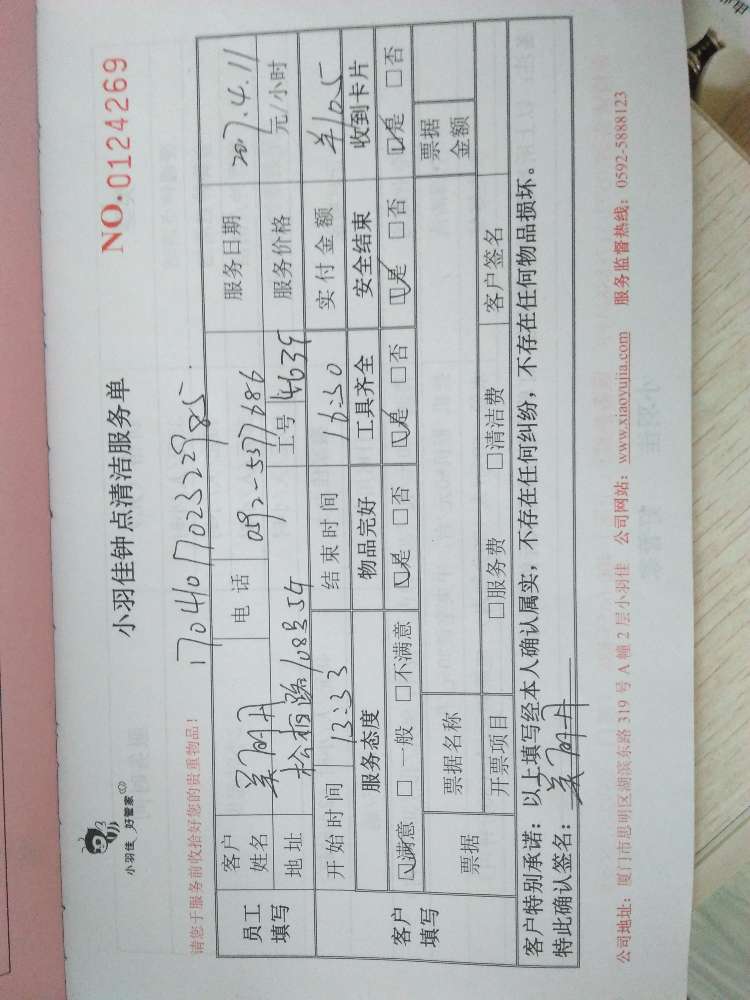 小羽佳 好管家
小羽佳钟点清洁服务单
NO. 0124269
请您于服务前收拾好您的贵重物品!
员工填写
客户姓名
电话 0592-5377686
服务日期 2017.4.11
地址 松柏路108号54
工号 4635
服务价格 元/小时
开始时间 13:33 结束时间 16:30 实付金额 ¥105
客户填写
服务态度 物品完好 工具齐全 安全结束 收到卡片
☑满意 □一般 □不满意 ☑是 □否 ☑是 □否 ☑是 □否 ☑是 □否
票据 票据名称 票据金额
开票项目 □服务费 □清洁费 客户签名
客户特别承诺:以上填写经本人确认属实,不存在任何纠纷,不存在任何物品损坏。
特此确认签名:
公司地址:厦门市思明区湖滨东路 319 号 A 幢 2 层小羽佳 公司网站:www.xiaoyujia.com 服务监督热线:0592-5888123